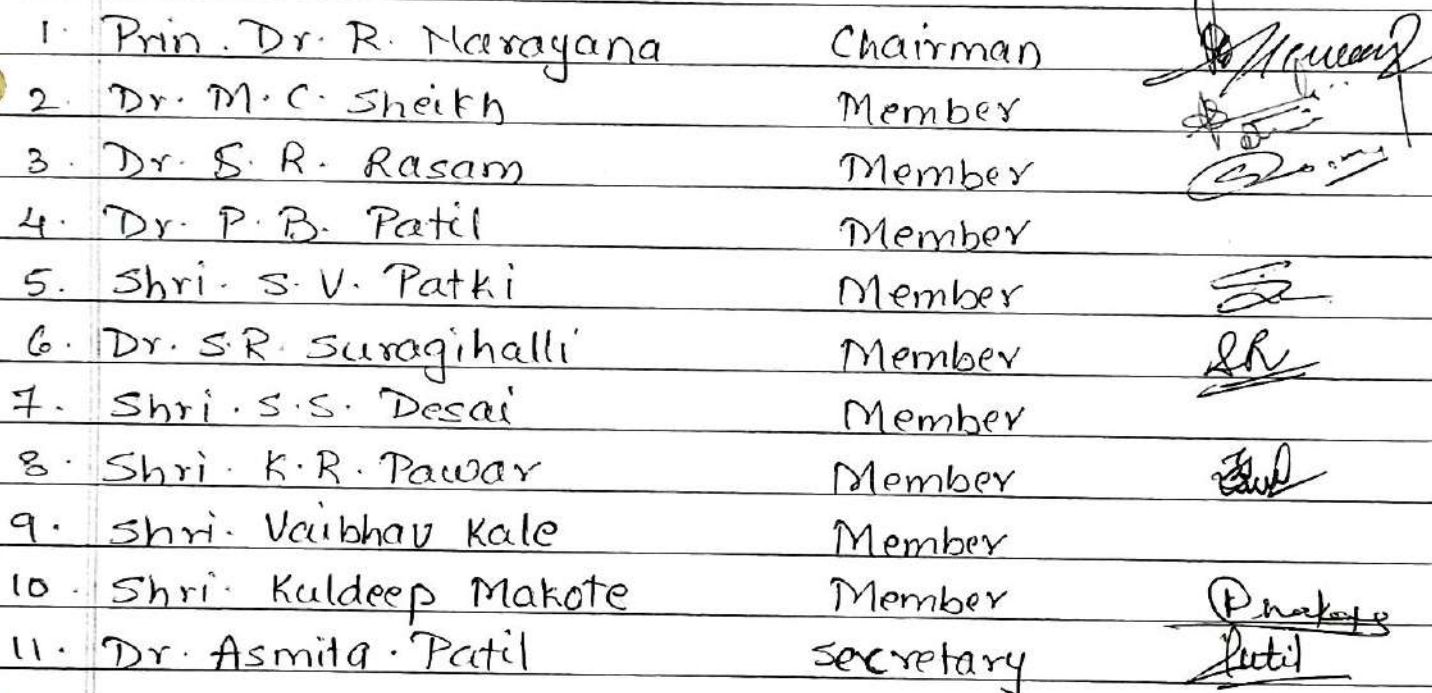 1. Prin. Dr. R. Narayana Chairman
2. Dr. M. C. Sheikh Member
3. Dr. S. R. Rasam Member
4. Dr. P. B. Patil Member
5. Shri. S. V. Patki Member
6. Dr. S.R. Suragihalli Member SR
7. Shri. S.S. Desai Member
8. Shri. K.R. Pawar Member
9. Shri. Vaibhav Kale Member
10. Shri. Kuldeep Makote Member
11. Dr. Asmita. Patil Secretary Patil